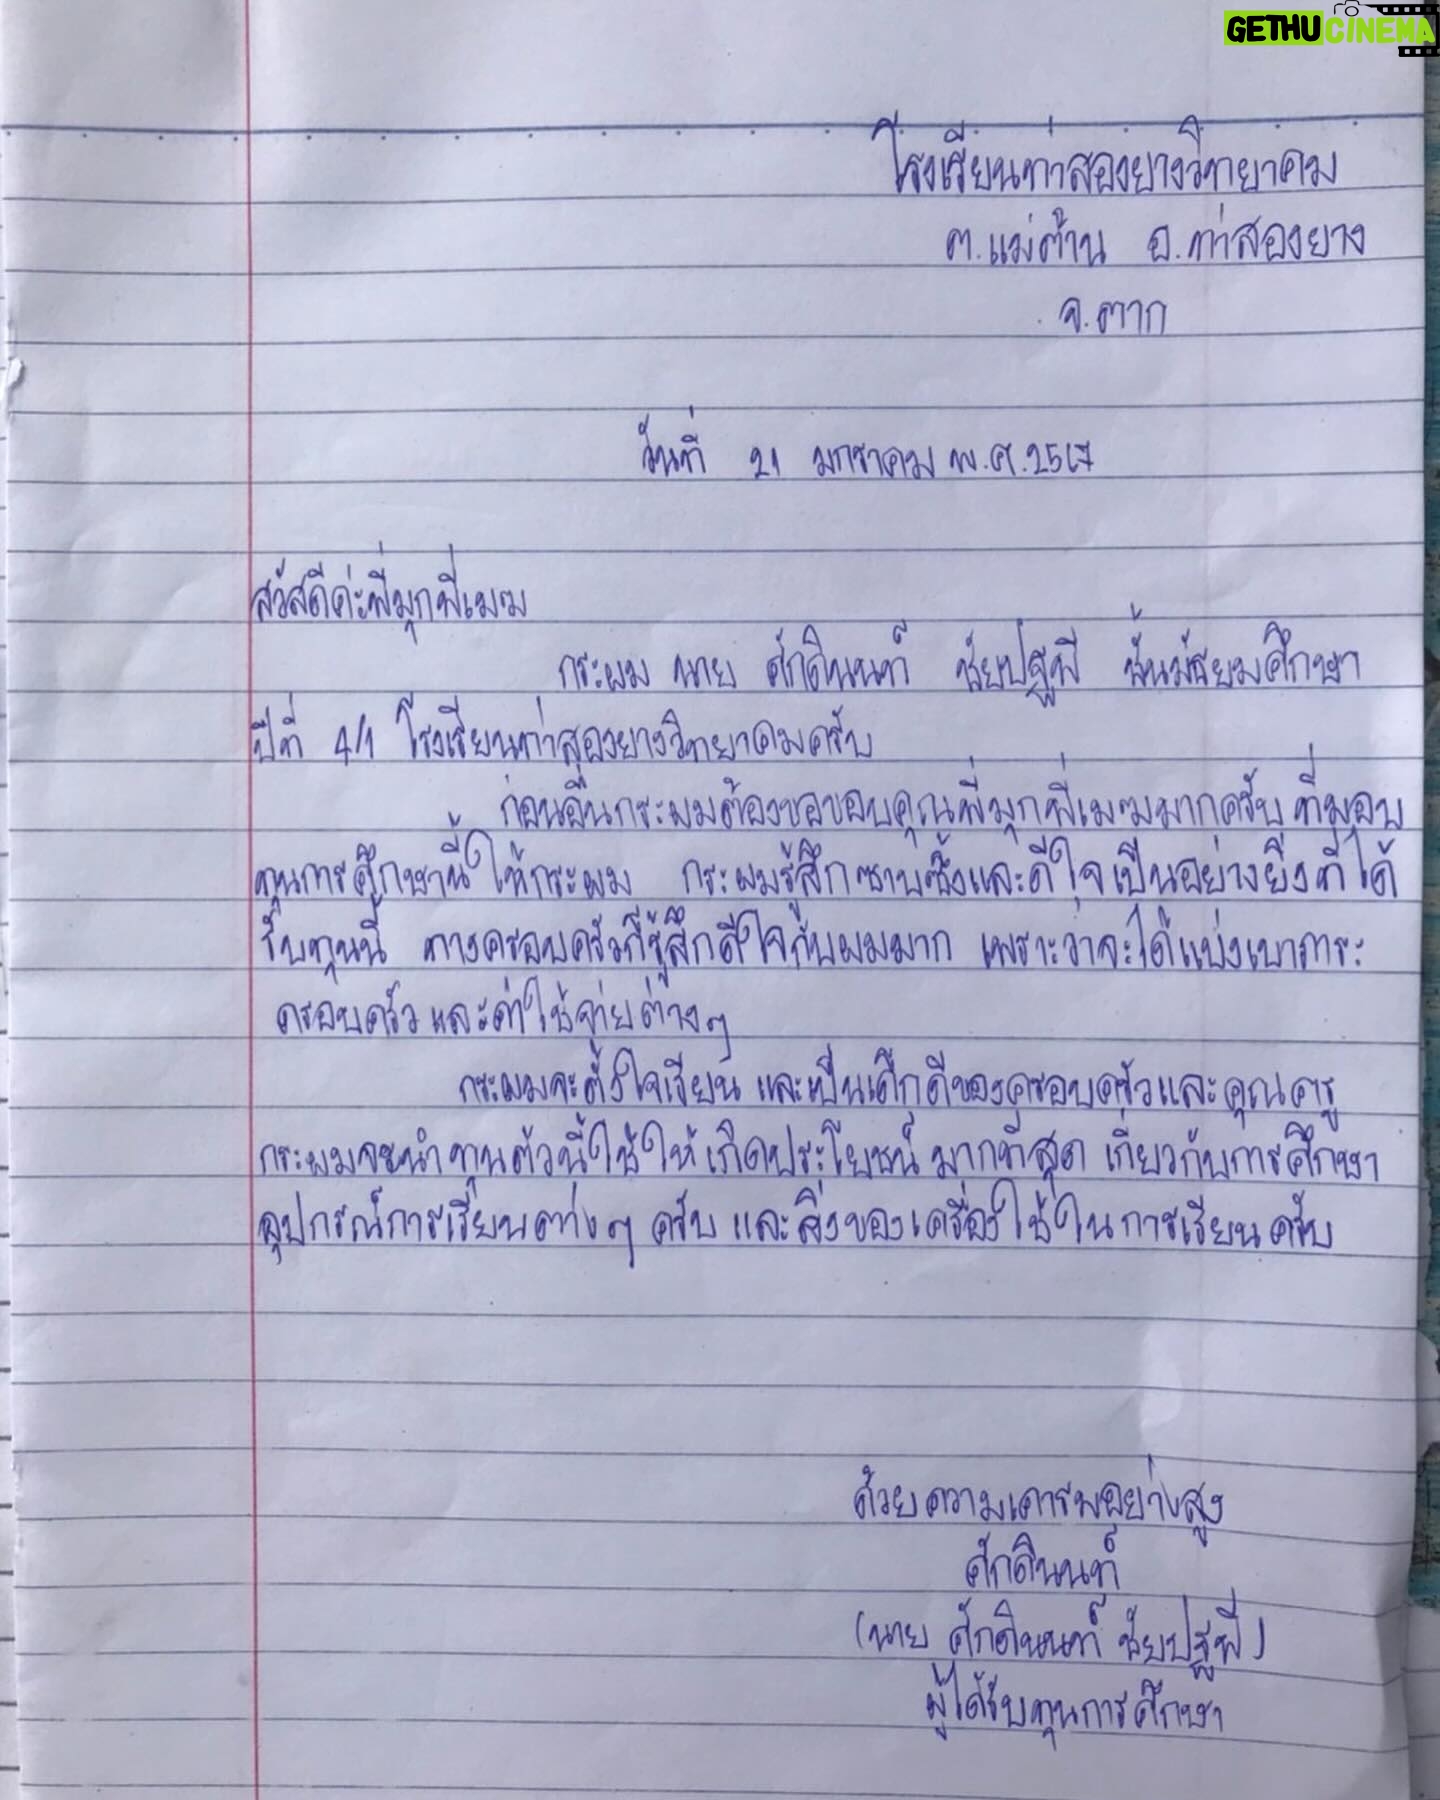 GETHUCINEMA
โรงเรียนท่าสองยางวิทยาคม
ต.แม่ต้าน อ.ท่าสองยาง
จ.ตาก
วันที่ 21 มกราคม พ.ศ.2567
สวัสดีค่ะพี่มุกพี่เมฆ
กระผม นาย ศักดินนท์ ชัยปฐพี ชั้นมัธยมศึกษา
ปีที่ 4/1 โรงเรียนท่าสองยางวิทยาคมครับ
ก่อนอื่นกระผมต้องขอขอบคุณพี่มุกพี่เมฆมากครับ ที่มอบ
ทุนการศึกษานี้ให้กระผม กระผมรู้สึกซาบซึ้งและดีใจเป็นอย่างยิ่งที่ได้
รับทุนนี้ ทางครอบครัวก็รู้สึกดีใจกับผมมาก เพราะว่าจะได้แบ่งเบาภาระ
ครอบครัว และค่าใช้จ่ายต่างๆ
กระผมจะตั้งใจเรียน และเป็นเด็กดีของครอบครัวและคุณครู
กระผมจะนำทุนตัวนี้ใช้ให้เกิดประโยชน์มากที่สุด เกี่ยวกับการศึกษา
อุปกรณ์การเรียนต่างๆ ครับ และสิ่งของเครื่องใช้ในการเรียนครับ
ด้วยความเคารพอย่างสูง
ศักดินนท์
(นาย ศักดินนท์ ชัยปฐพี)
ผู้ได้รับทุนการศึกษา